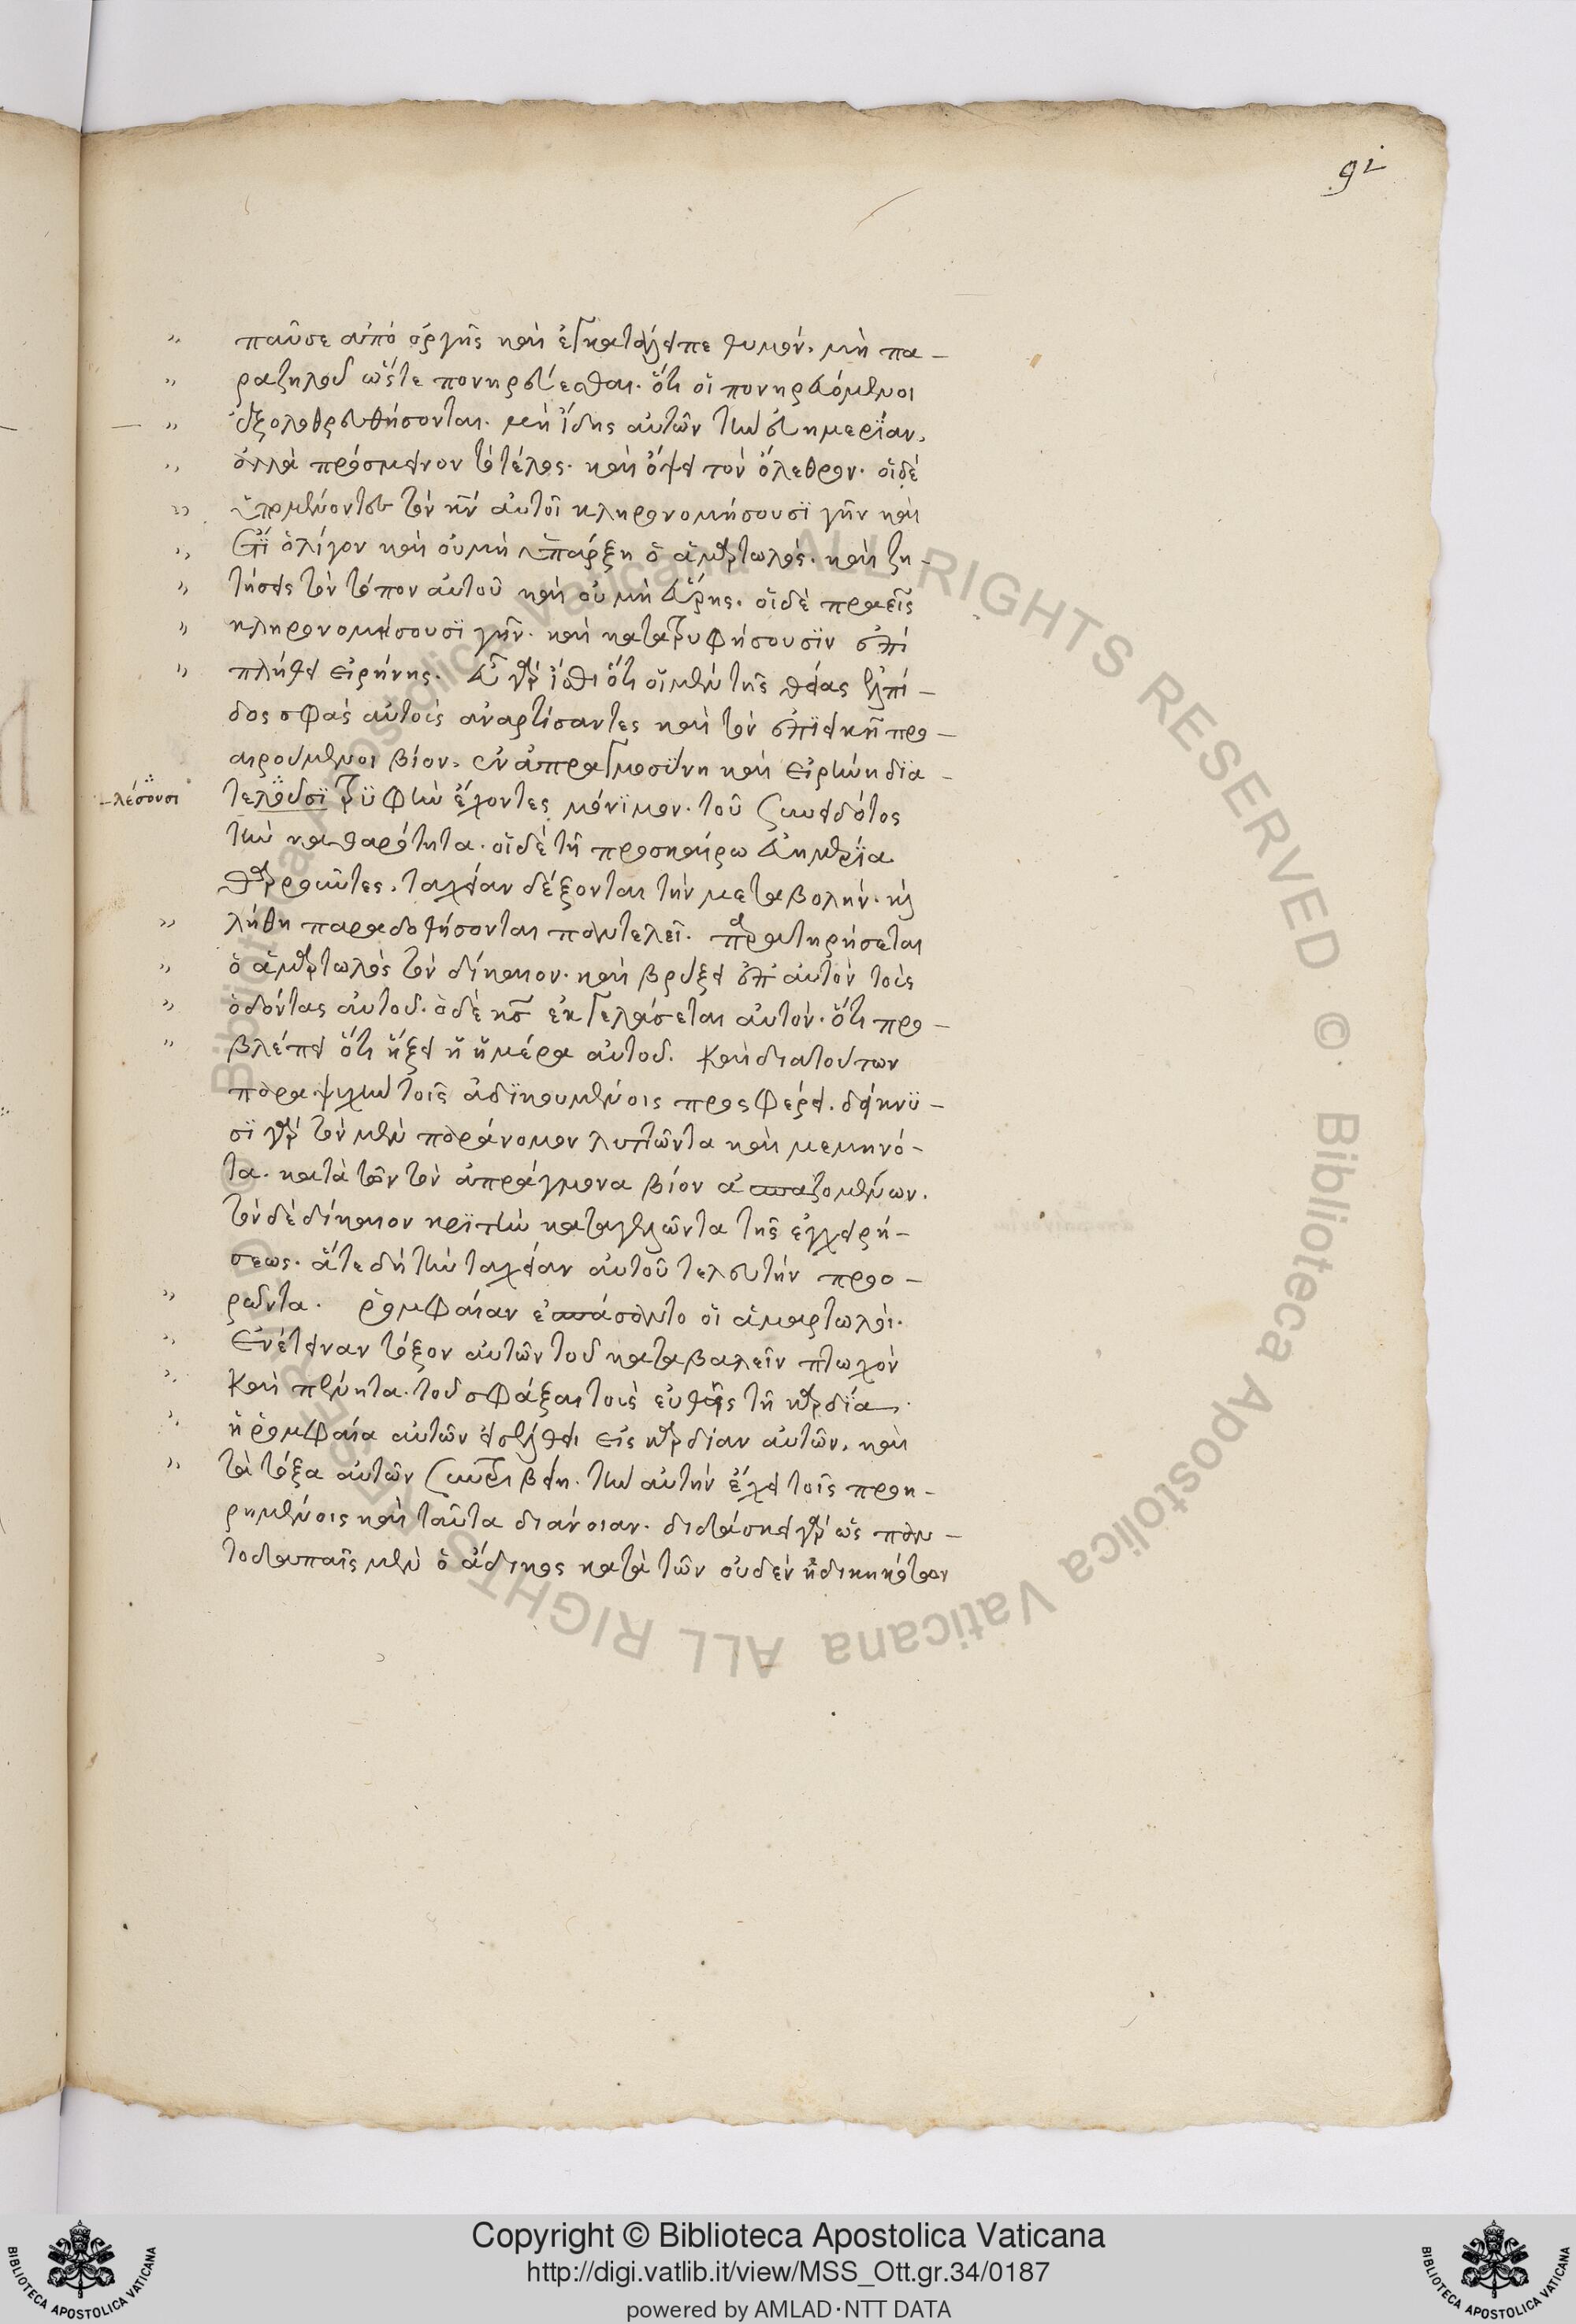 91
παῦσε ἀπὸ ὀργῆς καὶ ἐγκατάλειπε θυμόν. μὴ πα-
ραζηλοῦ ὥστε πονηρεύεσθαι. ὅτι οἱ πονηρευόμενοι
ἐξολοθρευθήσονται. μὴ ἴδης αὐτῶν τὴν εὐημερίαν,
ἀλλὰ πρόσμεινον τὸ τέλος. καὶ ὄψει τὸν ὄλεθρον. οἱ δὲ
ὑπομένοντες τὸν κν αὐτοὶ κληρονομήσουσϊ γῆν καὶ
ἔτϊ ὀλίγον καὶ οὐ μὴ ὑπάρξη ὁ ἁμαρτωλός. καὶ ζη-
τήσεις τὸν τόπον αὐτοῦ καὶ οὐ μὴ εὕρης. οἱ δὲ πραεῖς
κληρονομήσουσϊ γῆν. καὶ κατατρυφήσουσϊν ἐπὶ
πλήθει εἰρήνης. εὖ γὰρ ἴσθι ὅτι οἱ μὲν τῆς θείας ἐλπί-
δος σφᾶς αὐτοὺς ἀναρτίσαντες καὶ τὸν ἐπϊεικῆ προ-
αιρούμενοι βίον, ἐν ἀπραγμοσύνη καὶ εἰρήνη δϊα-
-λέσουσι
τελοῦσϊ τρϋφὴν ἔχοντες μόνϊμον. τοῦ συνειδότος
τὴν καθαρότητα. οἱ δὲ τῆ προσκαίρω εὐημερϊα
θαρροῦντες, ταχεῖαν δέξονται τὴν μεταβολήν. καὶ
λήθη παραδοθήσονται παντελεῖ. παρατηρήσεται
ὁ ἁμαρτωλὸς τὸν δίκαιον. καὶ βρύξει ἐπ' αὐτὸν τοὺς
ὀδόντας αὐτοῦ. ὁ δὲ κς ἐκγελάσεται αὐτόν. ὅτι προ-
βλέπει ὅτι ἥξει ἡ ἡμέρα αὐτοῦ. καὶ διὰ τούτων
παραψυχὴν τοῖς ἀδϊκουμένοις προσφέρει. δείκνϋ-
σϊ γὰρ τὸν μὲν παράνομον λυττῶντα καὶ μεμηνό-
τα. κατὰ τῶν τὸν ἀπράγμονα βίον ἀσπαζομένων.
τὸν δὲ δίκαιον κρϊτὴν καταγελῶντα τῆς ἐγχειρή-
σεως. ἅτε δὴ τὴν ταχεῖαν αὐτοῦ τελευτὴν προο-
ρῶντα. ῥομφαίαν ἐσπάσαντο οἱ ἁμαρτωλοί.
ἐνέτειναν τόξον αὐτῶν τοῦ καταβαλεῖν πτωχὸν
καὶ πένητα. τοῦ σφάξαι τοὺς εὐθεῖς τῆ καρδϊα.
ἡ ῥομφαία αὐτῶν εἰσέλθοι εἰς καρδίαν αὐτῶν, καὶ
τὰ τόξα αὐτῶν συντριβείη. τὴν αὐτὴν ἔχει τοῖς προη-
ρημένοις καὶ ταῦτα διάνοιαν. διδάσκει γὰρ ὡς παν-
τοδαπαῖς μὲν ὁ ἄδικος κατὰ τῶν οὐδὲν ἠδικηκότων
Copyright © Biblioteca Apostolica Vaticana
http://digi.vatlib.it/view/MSS_Ott.gr.34/0187
powered by AMLAD·NTT DATA